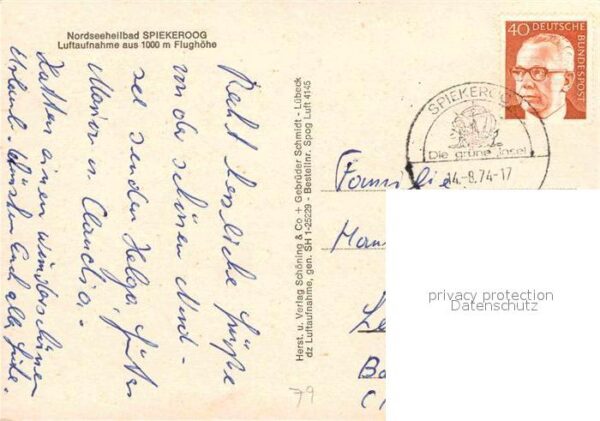 Nordseeheilbad SPIEKEROOG
Luftaufnahme aus 1000 m Flughöhe
Recht herzliche Grüße
von der schönen Nord-
see senden Helga, Götz
Marion u. Claudia.
Hatten einen wunderschönen
Urlaub. Wünschen Euch alles Gute.
Herst. u. Verlag Schöning & Co + Gebrüder Schmidt - Lübeck
dz Luftaufnahme, gen. SH 1-25229 - Bestellnr. Spog Luft 4145
40 DEUTSCHE
BUNDESPOST
SPIEKEROOG
Die grüne Insel
14.-8.74-17
Familie
79
privacy protection
Datenschutz